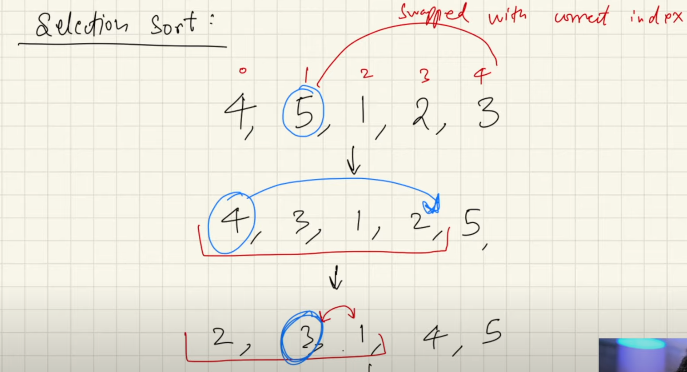 Selection Sort:
swapped with correct index
0 1 2 3 4
4, 5, 1, 2, 3
4, 3, 1, 2, 5,
2, 3, 1, 4, 5